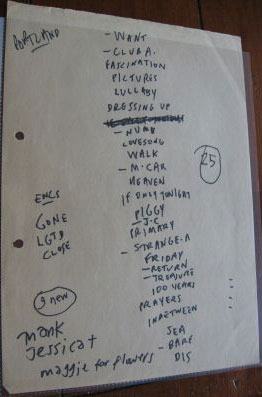 PORTLAND
- WANT
- CLUB A.
FASCINATION
PICTURES
LULLABY
DRESSING UP
- NUMB
LOVESONG
WALK
- M. CAR
HEAVEN
IF ONLY TONIGHT
PIGGY
- J-C
PRIMARY
- STRANGE.A
FRIDAY
- RETURN
- TREASURE
100 YEARS
PRAYERS
INBETWEEN
SEA
- BARE
DIS
25
ENCS
GONE
LGTD
CLOSE
9 new
mark
Jessicat
maggie for flowers